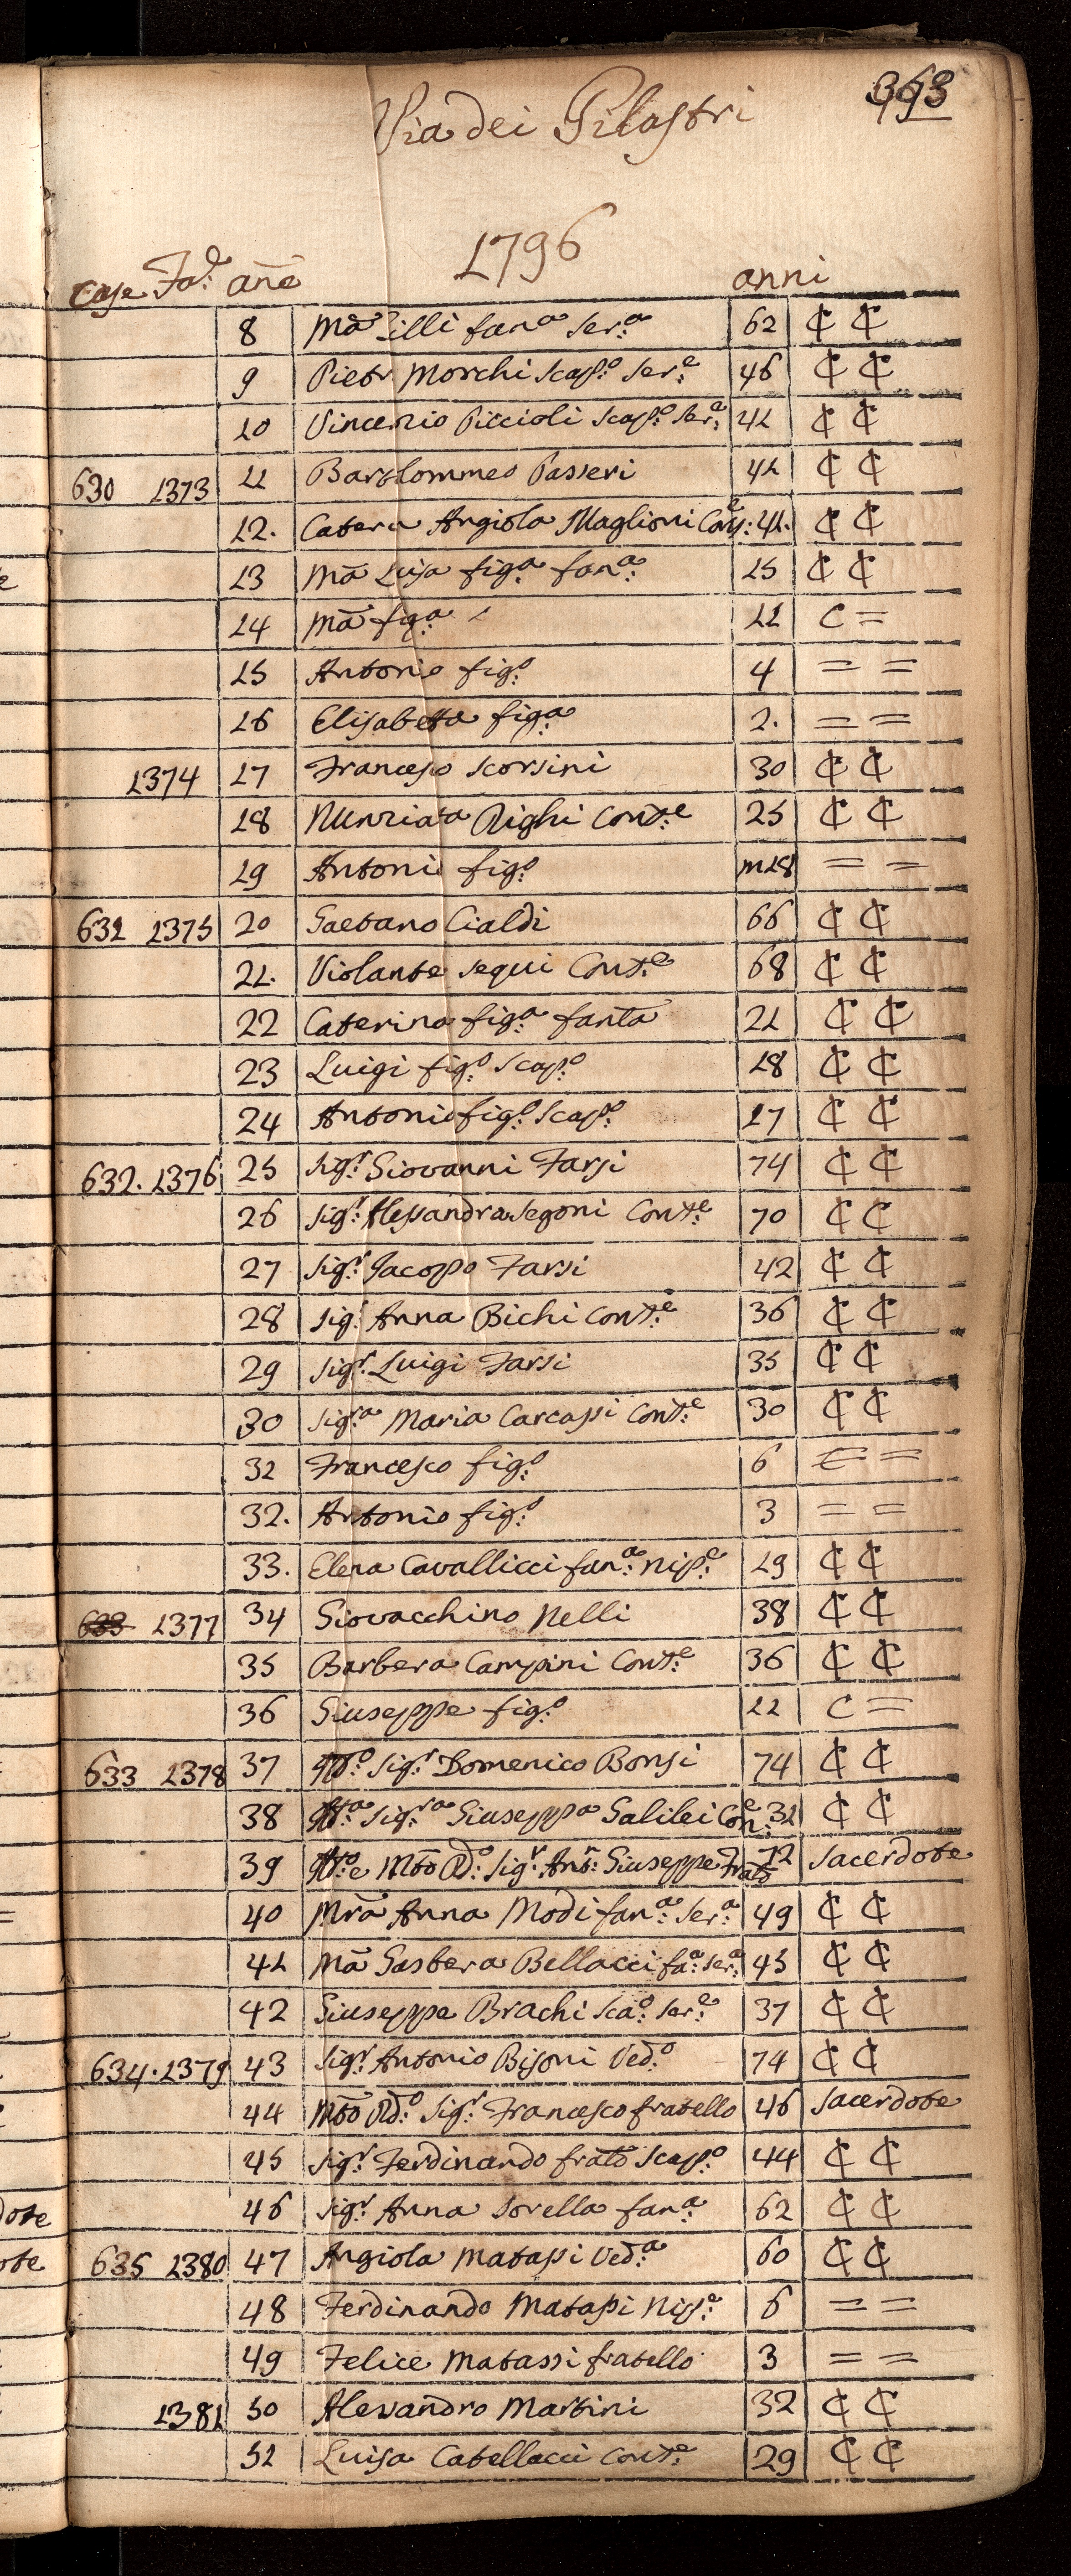 Via dei Pilastri
1796
Case Fa:e ane anni
8 Mã Zilli fan:a Ser:a 62 ₵ ₵
9 Pietr Morchi Scap:o Ser:e 46 ₵ ₵
10 Vincenzio Piccioli Scap:o Ser:e 41 ₵ ₵
630 1373 11 Bartolommeo Passeri 41 ₵ ₵
12. Catera Angiola Maglioni Con:e 41. ₵ ₵
13 Mã Luisa fig:a fan:a 15 ₵ ₵
14 Mã fig:a 11 C =
15 Antonio fig:o 4 = =
16 Elisabetta fig:a 2. = =
1374 17 Francesco Scorsini 30 ₵ ₵
18 Nunziata Righi Cont:e 25 ₵ ₵
19 Antonio fig:o m18 = =
631 1375 20 Gaetano Cialdi 66 ₵ ₵
21. Violante Segui Cont:e 68 ₵ ₵
22 Caterina fig:a fanta 21 ₵ ₵
23 Luigi fig:o Scap:o 18 ₵ ₵
24 Antonio fig:o Scap:o 17 ₵ ₵
632. 1376 25 Sig:r Giovanni Farsi 74 ₵ ₵
26 Sig:r Alessandra Segoni Cont:e 70 ₵ ₵
27 Sig:r Jacopo Farsi 42 ₵ ₵
28 Sig: Anna Bichi Cont:e 36 ₵ ₵
29 Sig:r Luigi Farsi 35 ₵ ₵
30 Sig:ra Maria Carcassi Cont:e 30 ₵ ₵
31 Francesco fig:o 6 = =
32. Antonio fig:o 3 = =
33. Elena Cavallicci fan:a Nip:e 19 ₵ ₵
633 1377 34 Giovacchino Nelli 38 ₵ ₵
35 Barbera Campini Cont:e 36 ₵ ₵
36 Giuseppe fig:o 11 C =
633 1378 37 Sig:r Domenico Bonsi 74 ₵ ₵
38 Sig:ra Giuseppa Galilei Con:e 31 ₵ ₵
39 e Mto Rd:o Sig:r Ant:r Giuseppe Frato 72 Sacerdote
40 Mrã Anna Modi fan:a Ser:a 49 ₵ ₵
41 Mã Gasbera Bellacci fa:a Ser:a 45 ₵ ₵
42 Giuseppe Brachi Sca:o Ser:e 37 ₵ ₵
634. 1379 43 Sig:r Antonio Bisoni Ved:o 74 ₵ ₵
44 Mto Rd:o Sig:r Francesco fratello 46 Sacerdote
45 Sig:r Ferdinando frato Scap:o 44 ₵ ₵
46 Sig:r Anna Sorella fan:a 62 ₵ ₵
635 1380 47 Angiola Matassi Ved:a 60 ₵ ₵
48 Ferdinando Matassi Nip:e 6 = =
49 Felice Matassi fratello 3 = =
1381 50 Alessandro Martini 32 ₵ ₵
51 Luisa Catellacci Cont:e 29 ₵ ₵